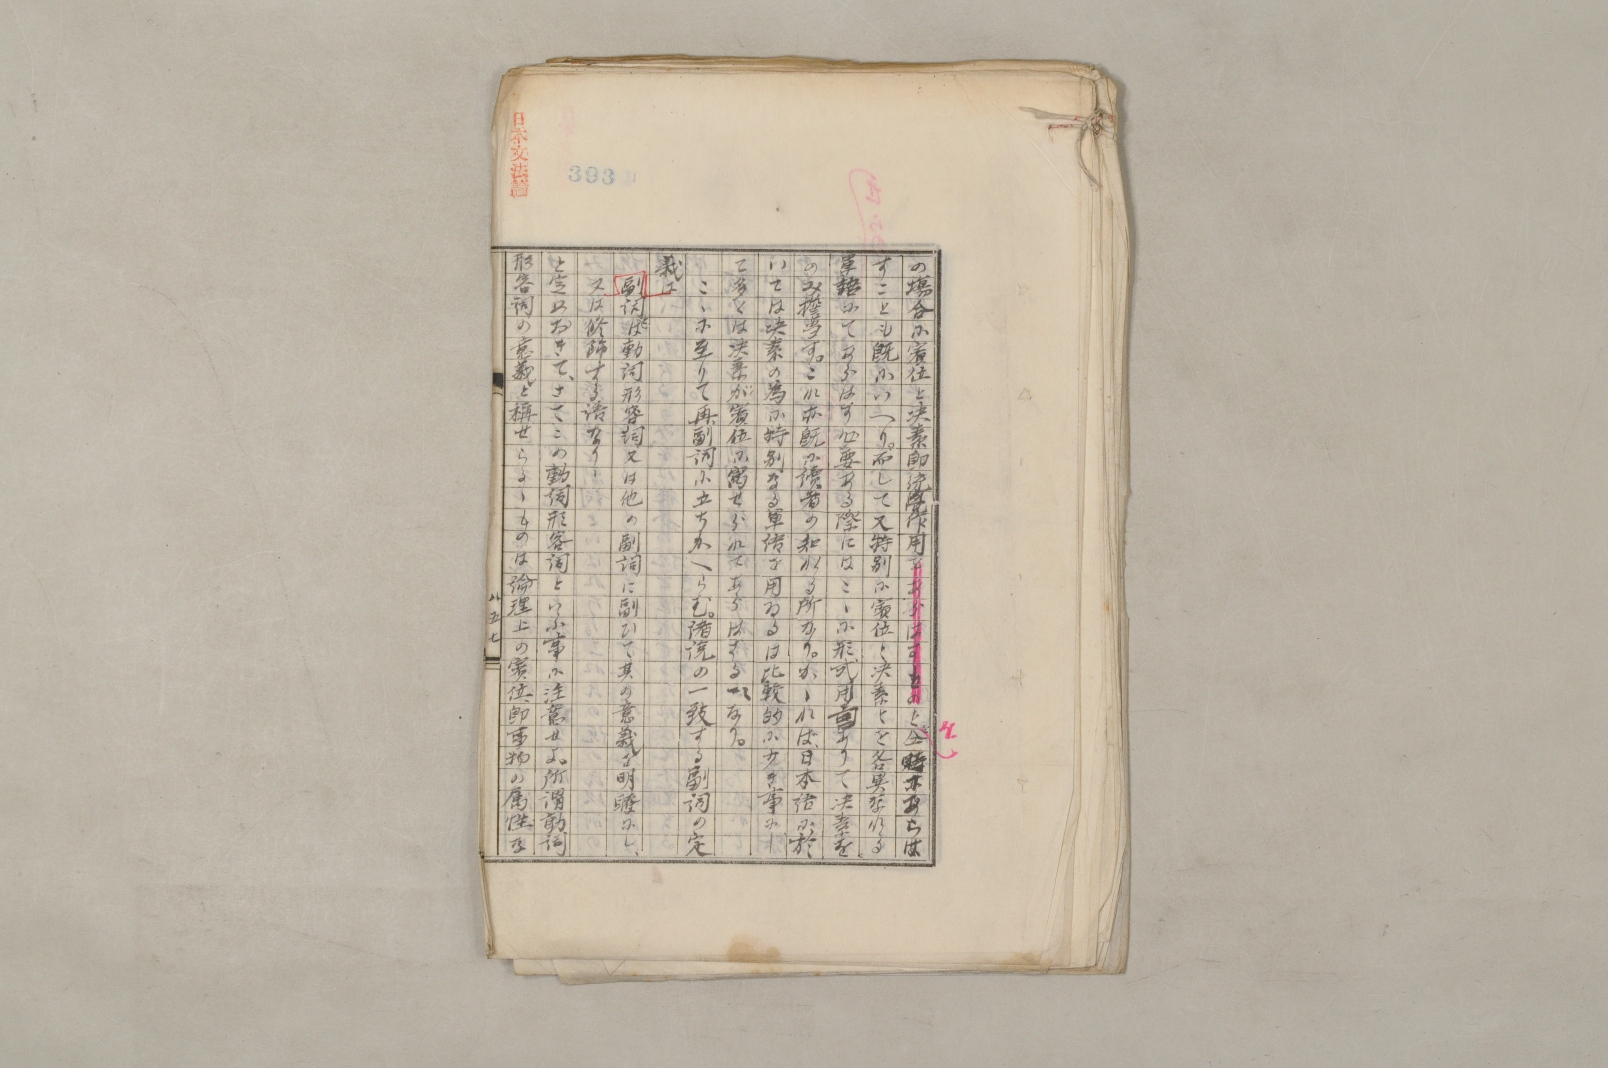 の場合に賓位と決素即統覚作用をあらはすものと全時にあらは
すことも既にいへり。而して又特別に賓位と決素とを各異なれる
単語にてあらはす必要ある際にはこゝに形式用言ありて決素を
のみ擔当す。これ亦既に読者の知れる所なり。かゝれば、日本語に於
いては決素の為に特別なる単語を用ゐるは比較的に少き事にし
て多くは決素が賓位に寓せられてあらはるゝなり。
こゝに至りて再副詞に立ちかへらむ。諸説の一致する副詞の定
義は
副詞は動詞形容詞又は他の副詞に副ひて其の意義を明瞭にし、
又は修飾する語なり
と定めおきて、さてこの動詞形容詞といふ事に注意せよ。所謂動詞
形容詞の意義と稱せらるゝものは論理上の賓位即事物の属性を
八五七
日本文法論
393